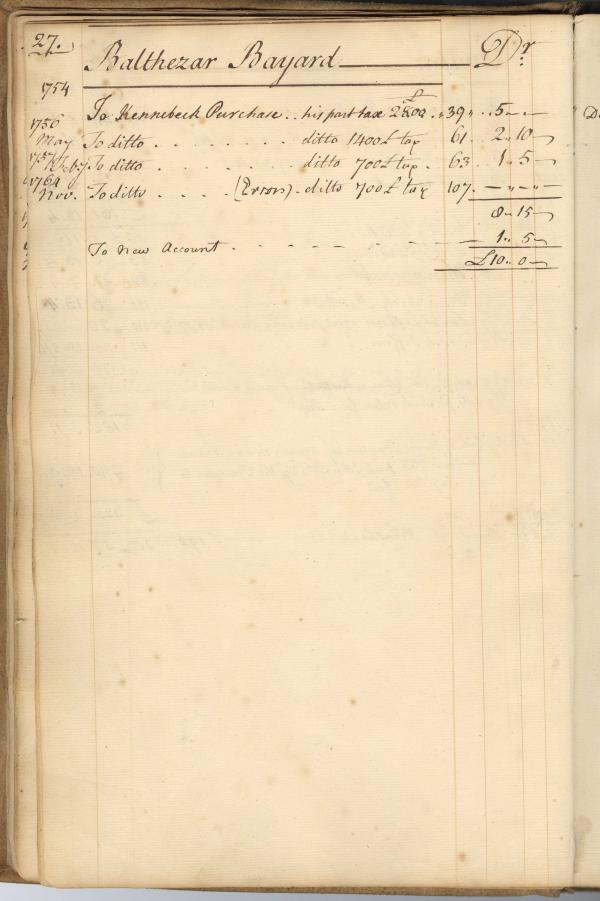 27.
Balthezar Bayard Dr.
1754
To Kennebeck Purchase .. his part tax 2800£ .. 39 .. 5 .. —
1756
May To ditto . . . . . . . . . ditto 1400£ tax 61. 2 .. 10 —
1757 To ditto . . . . . . . . . ditto 700£ tax . 63. 1 .. 5 —
1761
Nov. To ditto . . . . (Errors) . ditto 700£ tax 107. — .. — .. —
8 .. 15 —
To New Account . . — — — — — — 1 .. 5 —
£10 .. 0 —